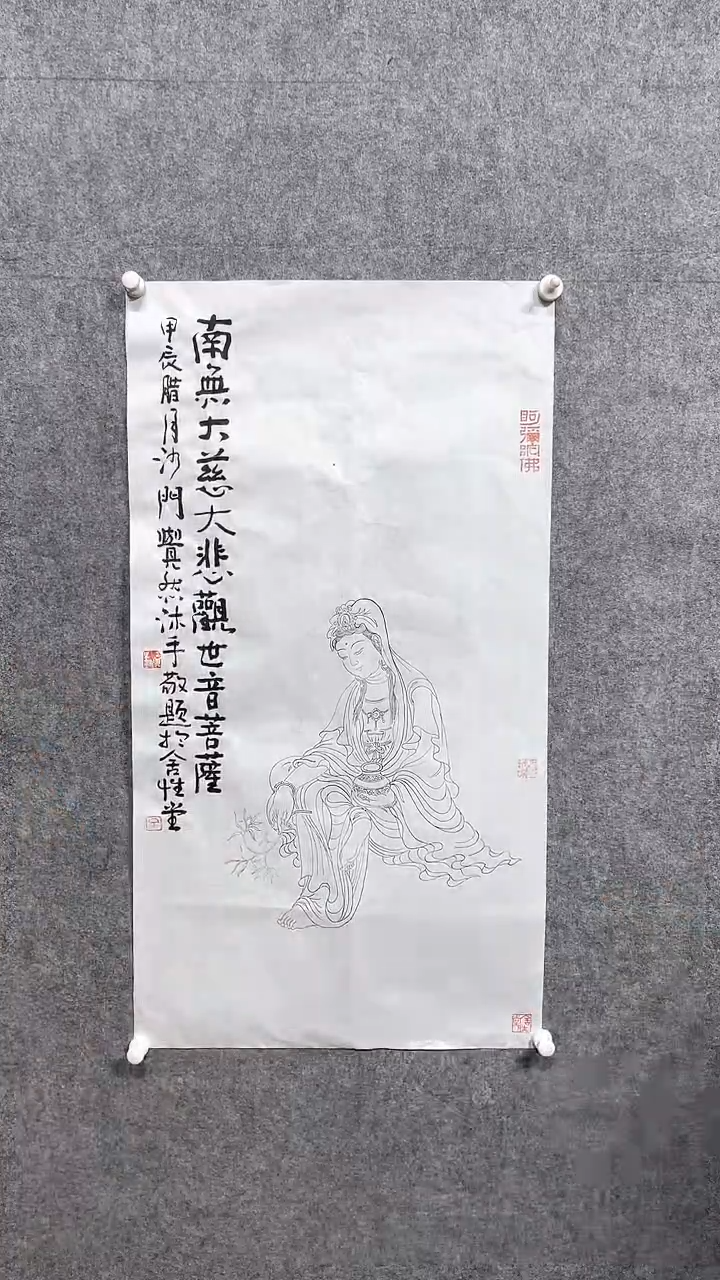 南無大慈大悲觀世音菩薩
甲辰腊月沙門覺然沐手敬題於舍性堂
阿彌陀佛